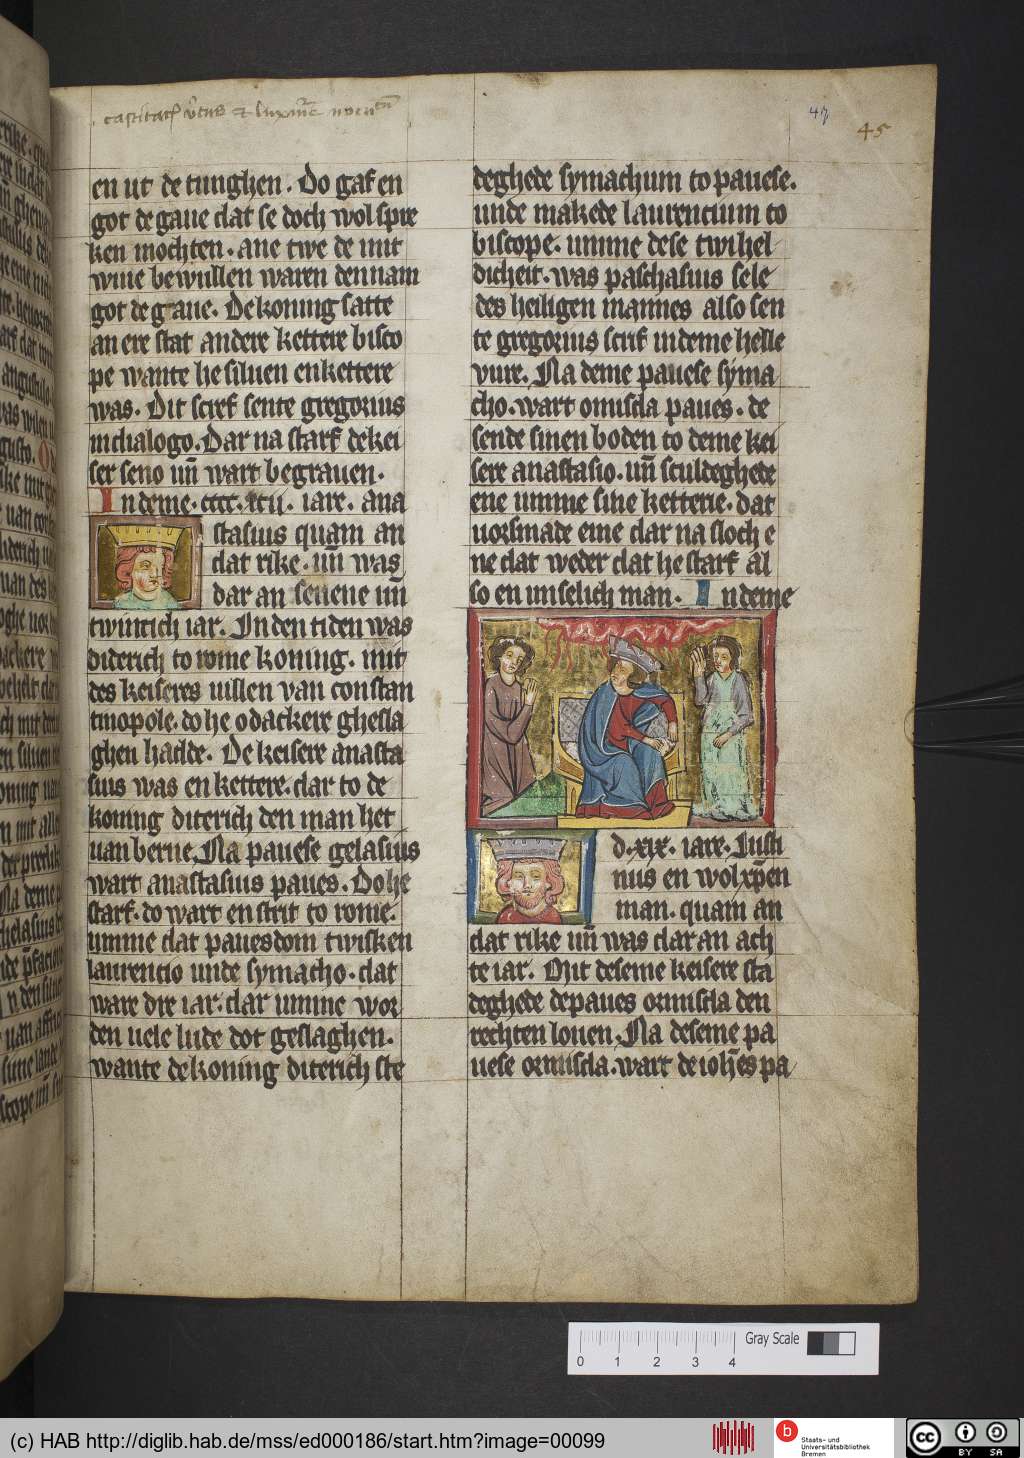 castitatis virtus et luxurie
47
45
en ut de tunghen. Do gaf en
got de gaue dat se doch wol spre
ken mochten. ane twe de mit
wiue bewullen waren den nam
got de gaue. De koning satte
an ere stat andere kettere bisco
pe wante he siluen en kettere
was. Dit scref sente gregorius
in dialogo. Dar na starf de kei
ser seno un̄ wart begrauen.
In deme. cccc. xcii. iare. ana
stasius quam an
dat rike. un̄ was
dar an seuene un̄
twintich iar. In den tiden was
diderich to rome koning. mit
des keiseres willen van constan
tinopole. do he odackere ghesla
ghen hadde. De keisere anasta
sius was en kettere. dar to de
koning diterich den man het
uan berne. Na pauese gelasius
wart anastasius paues. Do he
starf. do wart en strit to rome.
umme dat pauesdom twisken
laurencio unde symacho. dat
ware dre iar. dar umme wor
den uele lude dot geslaghen.
wante de koning diterich ste
deghede symachum to pauese.
unde makede laurencium to
biscope. umme dese twihel
dicheit. was paschasius sele
des heiligen mannes also sen
te gregorius scrif in deme helle
vure. Na deme pauese syma
cho. wart omisda paues. de
sende sinen boden to deme kei
sere anastasio. un̄ sculdeghete
ene umme sine ketterie. dat
uorsmade eme dar na sloch e
ne dat weder dat he starf al
so en unselich man. In deme
d. xix. iare. Justi
nus en wol xp̄en
man. quam an
dat rike un̄ was dar an ach
te iar. Mit deseme keisere sta
deghede de paues ormisda den
rechten louen. Na deseme pa
uese ormisda. wart de ioh̄es pa
Gray Scale
0 1 2 3 4
(c) HAB http://diglib.hab.de/mss/ed000186/start.htm?image=00099
b
Staats- und
Universitätsbibliothek
Bremen
cc
BY SA